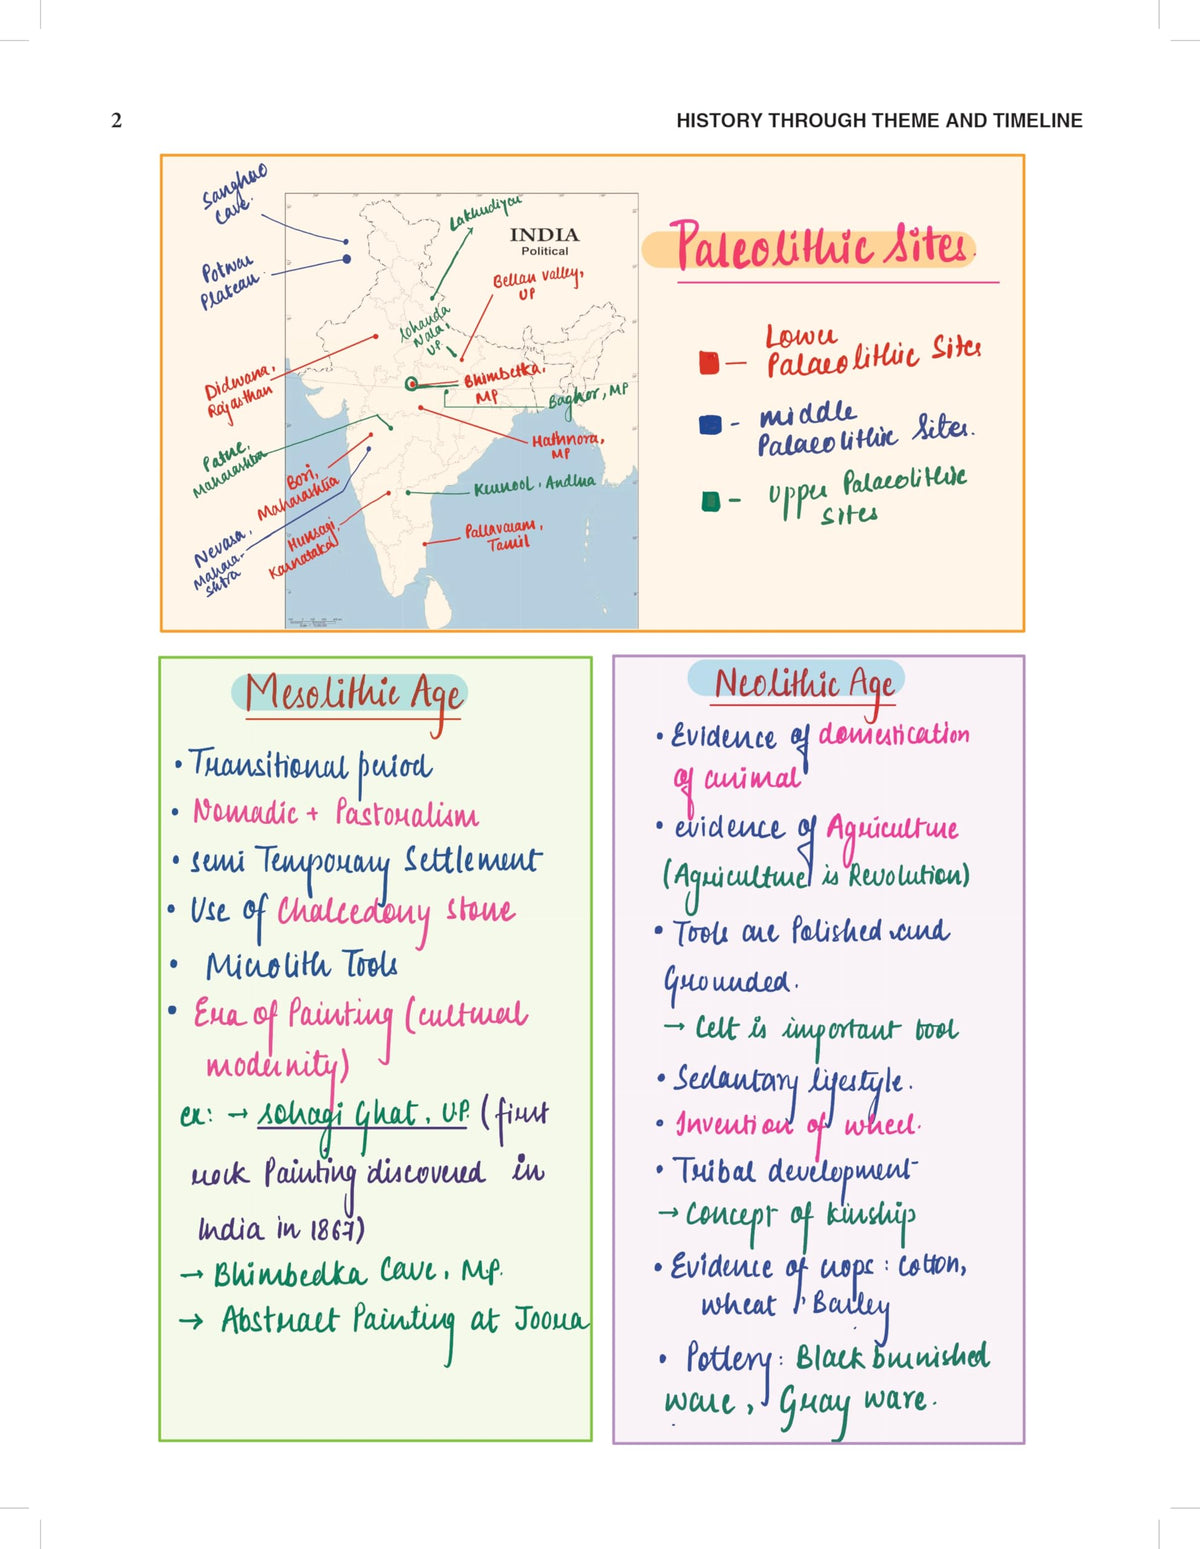 2
HISTORY THROUGH THEME AND TIMELINE
Sanghao
Cave.
Potwar
Plateau.
Didwana,
Rajasthan
Patne,
Maharashtra
Bori,
Maharashtra
Nevasa,
Mahara-
shtra
Hunsagi,
Karnataka
Lakhudiyar
INDIA
Political
Bellan valley,
UP
lohanda
Nala,
UP.
Bhimbetka,
MP
Baghor, MP
Hathnora,
MP
Kurnool, Andhra
Pallavaram,
Tamil
Paleolithic Sites.
Lower
Palaeolithic Sites
- middle
Palaeolithic Sites.
- upper Palaeolithic
sites
Mesolithic Age
• Transitional period
• Nomadic + Pastoralism
• semi Temporary Settlement
• Use of Chalcedony stone
• Microlith Tools
• Era of Painting (cultural
modernity)
ex: → sohagi Ghat, U.P. (first
rock Painting discovered in
India in 1867)
→ Bhimbedka Cave, M.P.
→ Abstract Painting at Joora
Neolithic Age
• Evidence of domestication
of animal
• evidence of Agriculture
(Agriculture is Revolution)
• Tools are Polished and
Grounded.
→ Celt is important tool
• Sedantary lifestyle.
• Invention of wheel.
• Tribal development
→ Concept of kinship
• Evidence of crops : Cotton,
wheat, Barley
• Pottery : Black burnished
ware, Gray ware.